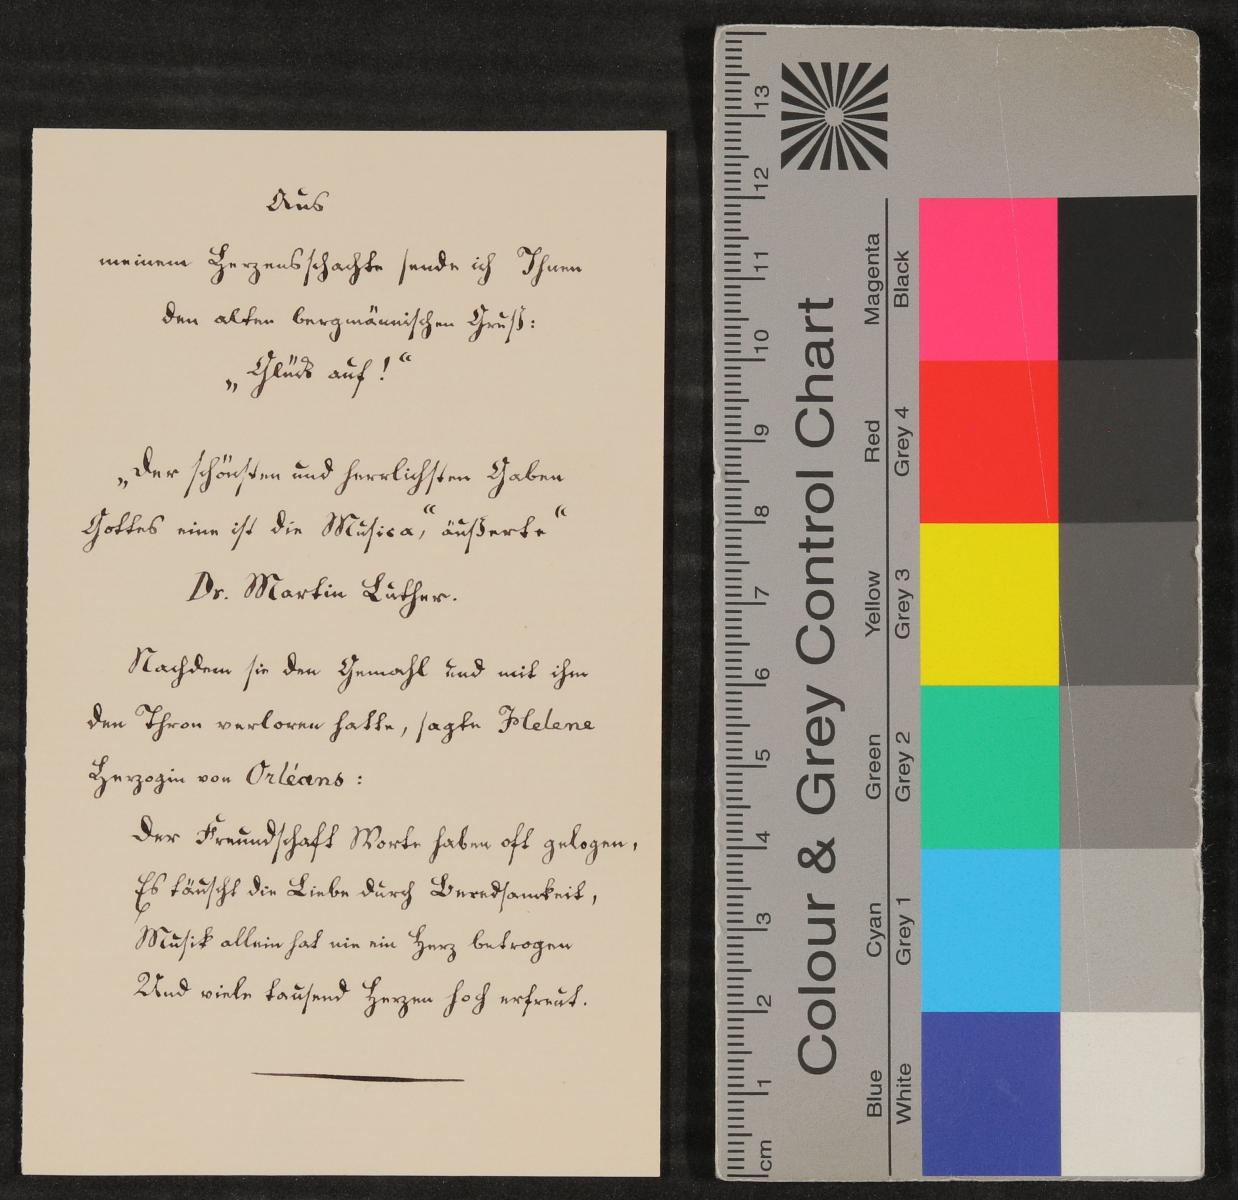 Aus
meinem Herzensschachte sende ich Ihnen
den alten bergmännischen Gruß:
„Glück auf!“
„Der schönsten und herrlichsten Gaben
Gottes eine ist die Musica,“ äußerte“
Dr. Martin Luther.
Nachdem sie den Gemahl und mit ihm
den Thron verloren hatte, sagte Helene
Herzogin von Orléans:
Der Freundschaft Worte haben oft gelogen,
Es täuscht die Liebe durch Beredsamkeit,
Musik allein hat nie ein Herz betrogen
Und viele tausend Herzen hoch erfreut.
Colour & Grey Control Chart
Magenta
Red
Yellow
Green
Cyan
Blue
Black
Grey 4
Grey 3
Grey 2
Grey 1
White
13
12
11
10
9
8
7
6
5
4
3
2
1
cm